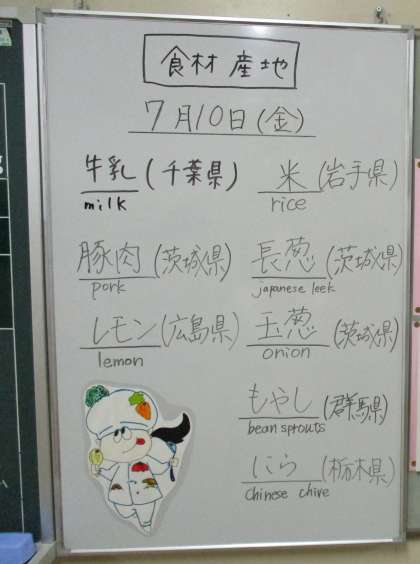 食材産地
7月10日(金)
牛乳(千葉県) 米(岩手県)
milk rice
豚肉(茨城県) 長葱(茨城県)
pork japanese leek
レモン(広島県) 玉葱(茨城県)
lemon onion
もやし(群馬県)
bean sprouts
にら(栃木県)
Chinese chive